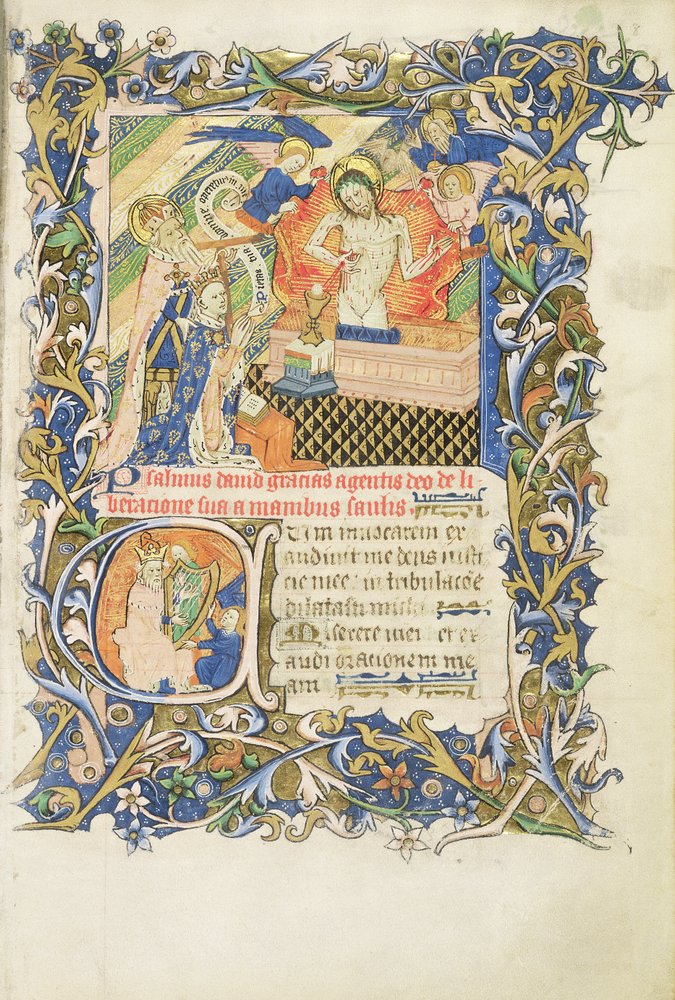 domine operetur
Psalmus dauid gracias agentis deo de li
beracione sua a manibus saulis.
CUm inuocarem ex
audiuit me deus iusti
cie mee: in tribulacōe
dilatasti michi
Miserere mei et ex
audi orationem me
am